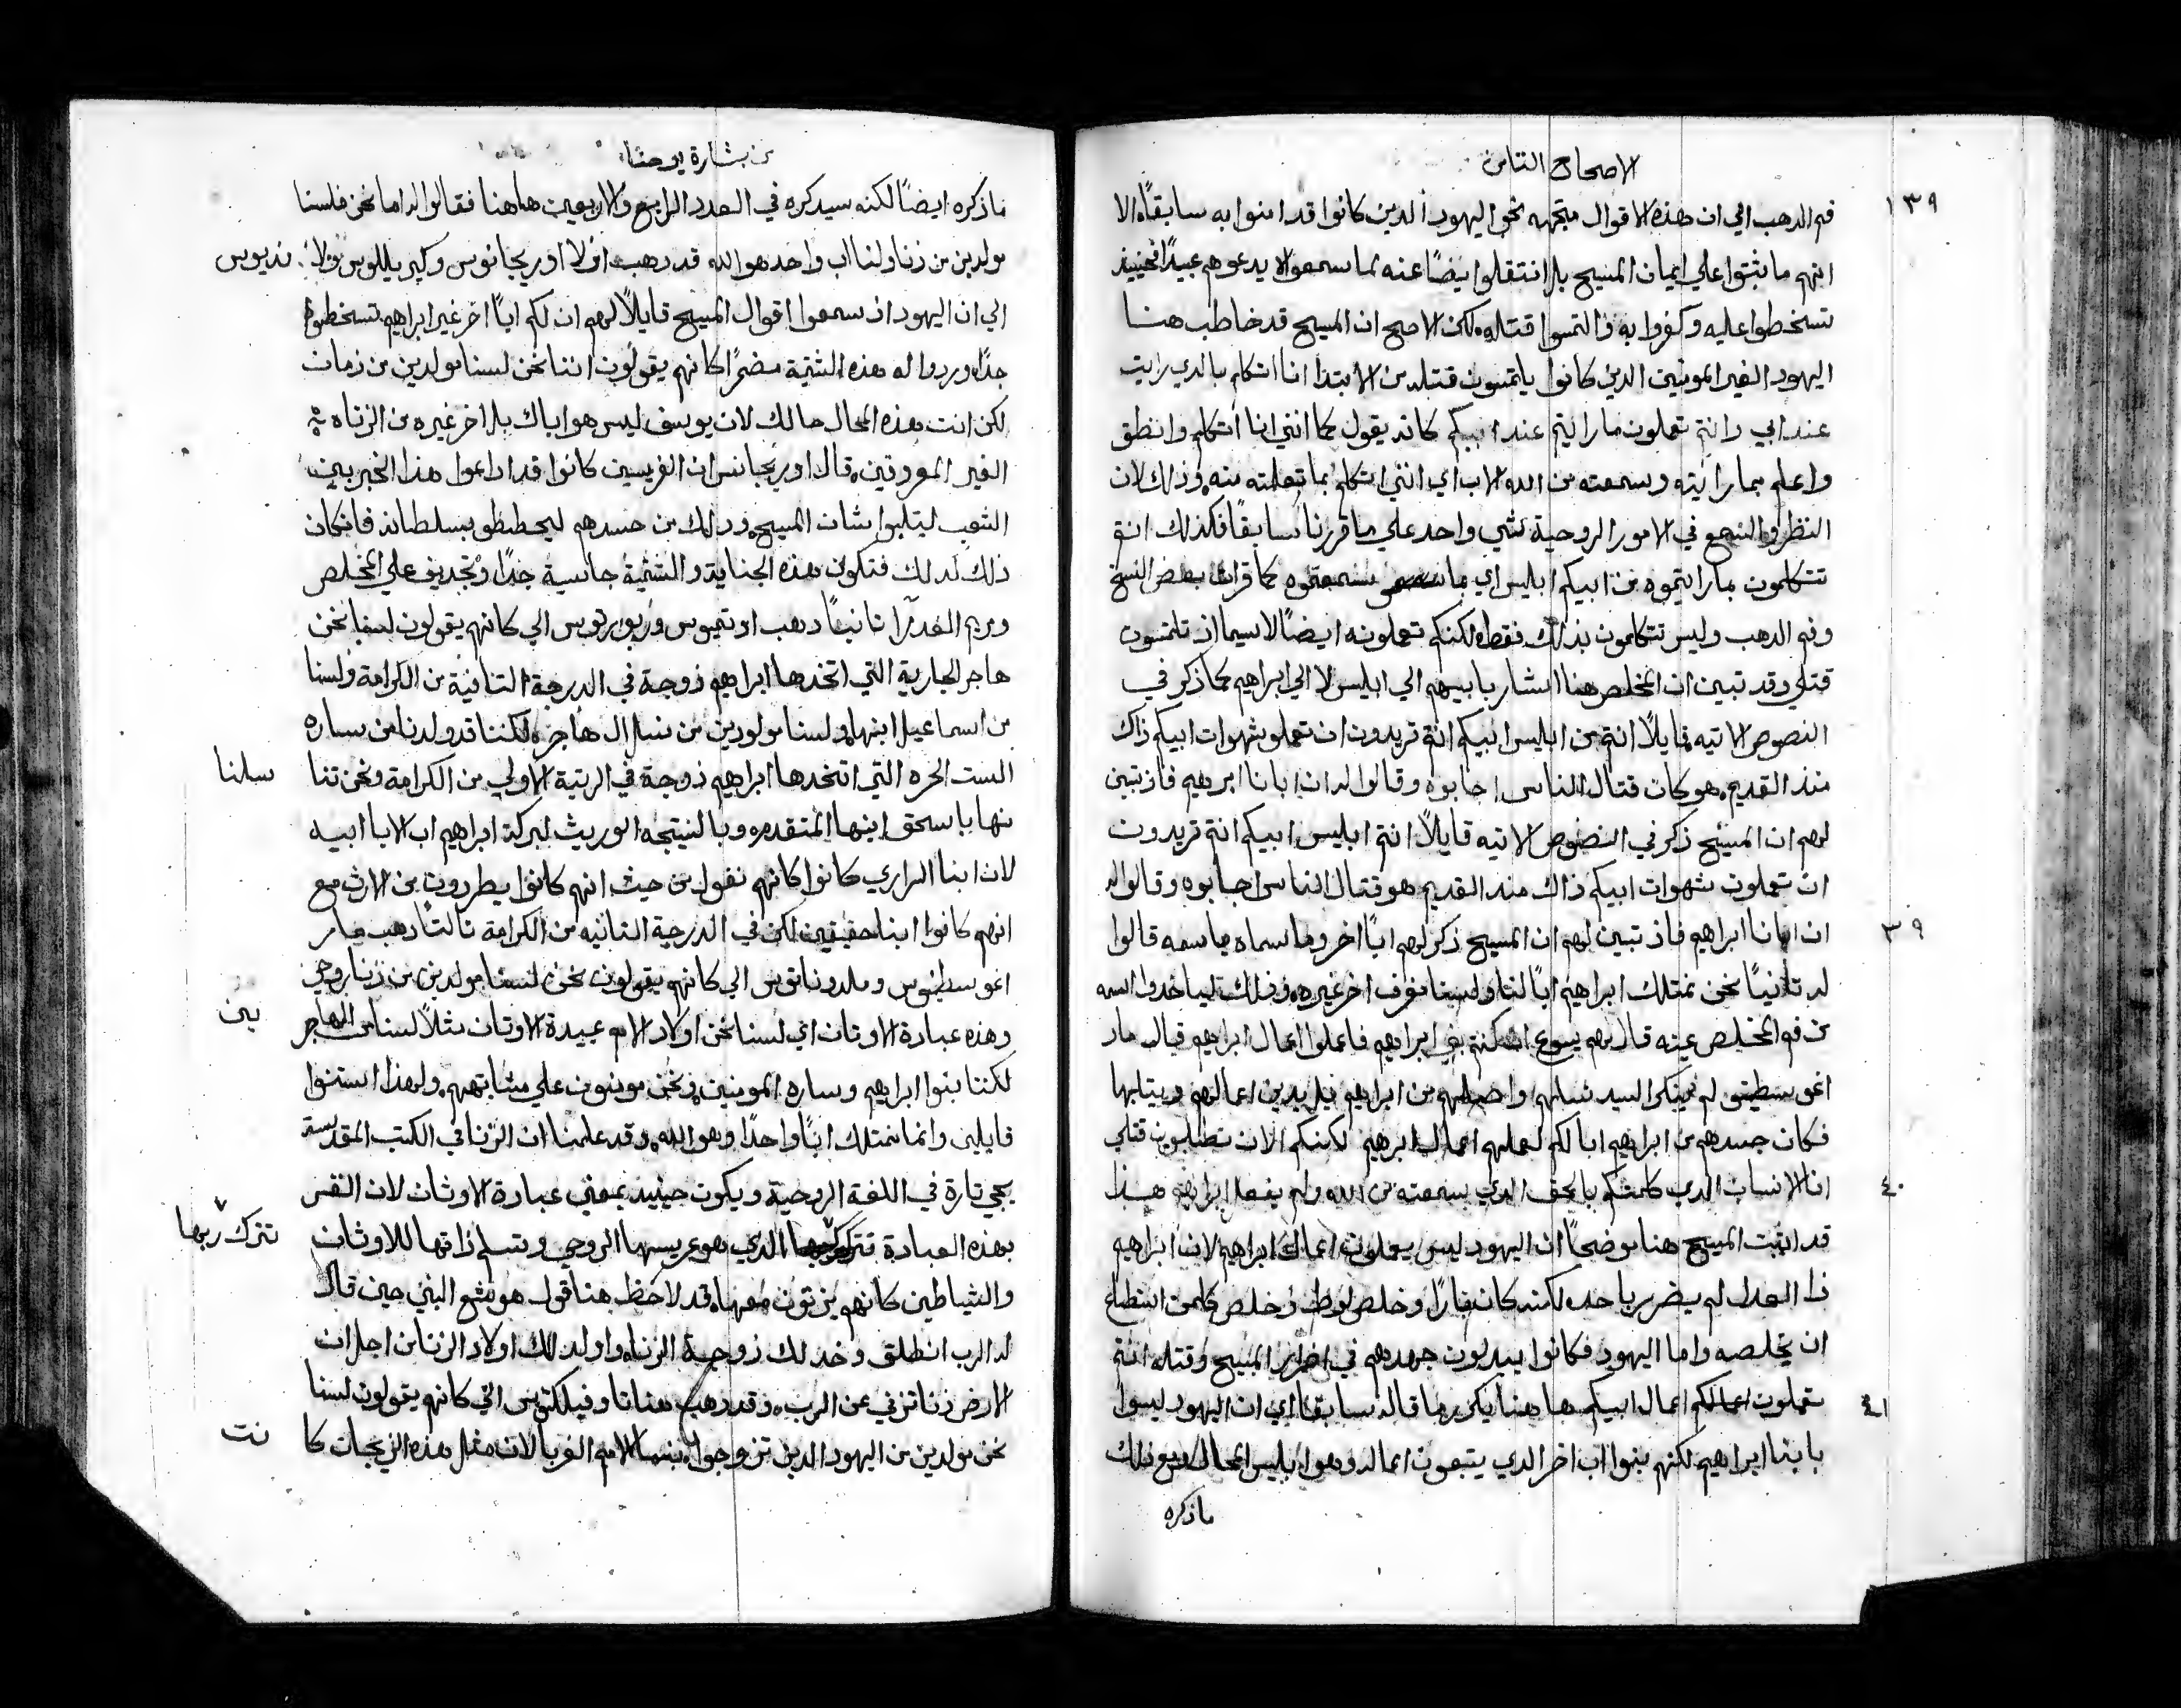 الاصحاح التامن
١٣٩
فم الدهب الي ان هذه الاقوال متجهه نحو اليهود الدين كانوا قد امنوا به سابقاً الا
انهم ما ثبتوا علي ايمان المسيح بل انتقلوا ايضاً عنه لما سمعوا يدعوهم عبيداً فحينيذ
تسخطوا عليه وكفروا به والتمسوا قتله لكن الاصح ان المسيح قد خاطب هنا
اليهود الغير المومنين الدين كانوا يلتمسون قتله من الابتدا انا اتكلم بالدي رايت
عند ابي وانتم تعملون ما رايتم عند ابيكم كانه يقول كما انني انا اتكلم وانطق
واعلم بما رايته وسمعته من الله الاب اي انني اتكلم بما تعلمته منه وذلك لان
النظر والسمع في الامور الروحية شي واحد علي ما قررنا سابقاً فكذلك انتم
تتكلمون بما رايتموه من ابيكم ابليس اي بما سمعتموه كما قرات بعض النسخ
وفم الدهب وليس تتكلمون بذلك فقط لكنكم تعملونه ايضاً لاسيما اذ تلتمسون
قتلي وقد تبين ان المخلص هنا اشار بابيهم الي ابليس لا الي ابراهيم كما ذكر في
النصوص الاتيه قايلاً انتم من ابليس ابيكم انتم تريدون ان تعملو شهوات ابيكم ذاك
منذ القديم هو كان قتال الناس اجابوه وقالوا له ان ابانا ابرهيم فاذ تبين
لهم ان المسيح ذكر في النصوص الاتيه قايلاً انتم ابليس ابيكم انتم تريدون
ان تعملون شهوات ابيكم ذاك منذ القديم هو قتال الناس اجابوه وقالوا له
٣٩
ان ابانا ابراهيم فاذ تبين لهم ان المسيح ذكر لهم اباً اخر وما سماه باسمه قالوا
له تانياً نحن نمتلك ابراهيم اباً لنا ولسنا نعرف اخر غيره وذلك لياخدوا اسمه
من فم المخلص عينه قال لهم يسوع ان كنتم بني ابراهيم فاعملوا اعمال ابراهيم قال مار
اغوسطينس لم ينكر السيد نسلهم واصلهم من ابراهيم بل اعمالهم
فكان جسدهم من ابراهيم ابا لكم اعمال ابرهيم لكنكم الان تطلبون قتلي
٤٠
انا الانسان الدي كلمتكم بالحق الدي سمعته من الله ولم يفعل ابراهيم هذا
قد اتبت المسيح هنا موضحاً ان اليهود ليس يعملون اعمال ابراهيم لان ابراهيم
ذا العدل لم يضرر باحد لكنه كان باراً وخلص لوط وخلص كلمن استطاع
ان يخلصه واما اليهود فكانوا يبدلون جهدهم في اضرار المسيح وقتله انتم
٤١
تعملون اعمالكم اعمال ابيكم ها هنا يكرر ما قاله سابقا اي ان اليهود ليسوا
بابنا ابراهيم لكنهم بنوا اب اخر الدي يتبعون اعماله وهو ابليس المحال ومع ذلك
ماذكره
من بشارة يوحنا
ماذكره ايضاً لكنه سيدكره في العدد الرابع والاربعين هاهنا فقالوا له اما نحن فلسنا
مولدين من زنا ولنا اب واحد هو الله قد دهب اولا اوريجانوس وكيرييللوس ولا
الي ان اليهود اذ سمعوا اقوال المسيح قايلاً لهم ان لكم اباً اخر غير ابراهيم تسخطوا
جداً وردوا له هذه الشتيمة مضمراً كانهم يقولون اننا نحن لسنا مولدين من زمان
لكن انت هذه الحال حالك لان يوسف ليس هو اباك بل اخر غيره من الزناه
الغير المعروفين قال اوريجانس ان الفريسين كانوا قد اداعوا هذا الخبر بين
الشعب ليتلبوا بشان المسيح وذلك من حسدهم ليحططو بسلطانه فان كان
ذلك كذلك فتكون هذه الجناية والشتيمة جاسية جداً وتجديف علي المخلص
ومريم العدرا تانياً دهب اوتيموس وروبرتوس الي كانهم يقولون لسنا نحن
هاجر الجارية التي اتخدها ابراهيم زوجة في الدرجة التانية من الكرامة ولسنا
من اسماعيل ابنها ولسنا مولودين من نسل ال هاجر لكننا قد ولدنا من ساره
الست الحره التي اتخدها ابراهيم زوجة في الرتبة الاولي من الكرامة ونحن تنا
سلنا
منها باسحق ابنها المتقدم وبالنتيجه الوريث لبركة ابراهيم اب الابا ابيه
لان ابنا السراري كانوا كانهم نغول من حيث انهم كانوا يطردون من الارث مع
انهم كانوا ابنا حقيقيين لكن في الدرجة التانيه من الكرامة تالتاً دهب مار
اغوسطينوس وملدوناتوس الي كانهم يقولون نحن لسنا مولدين من زنا روحي
وهذه عبادة الاوتان اي لسنا نحن اولاد الامم عبيدة الاوتان مثلاً لسنا من الهاجر
بين
لكننا بنوا ابراهيم وساره المومنين ونحن مومنون علي مثابتهم ولهذا استنوا
قايلين وانما نمتلك اباً واحداً وهو الله وقد علمنا ان الزنا في الكتب المقدسة
يجي تارة في اللغة الروحية ويكون حينيد بمعني عبادة الاوثان لان النفس
بهذه العبادة تترك ربها الدي هو عريسها الروحي وتسلم ذاتها للاوثان
تترك ربها
والشياطين كانهم يزنون معها قد لاحظ هنا قول هوشع النبي حين قال
له الرب انطلق وخد لك زوجة الزناه واولد لك اولاد الزنا من اجل ان
الارض زنا تزني عن الرب وقد دهب هنا تاوفيلكتوس الي كانهم يقولون لسنا
نحن مولدين من اليهود الدين تزوجوا بنسا الامم الغربا لان مثل هذه الزيجات كا
نت